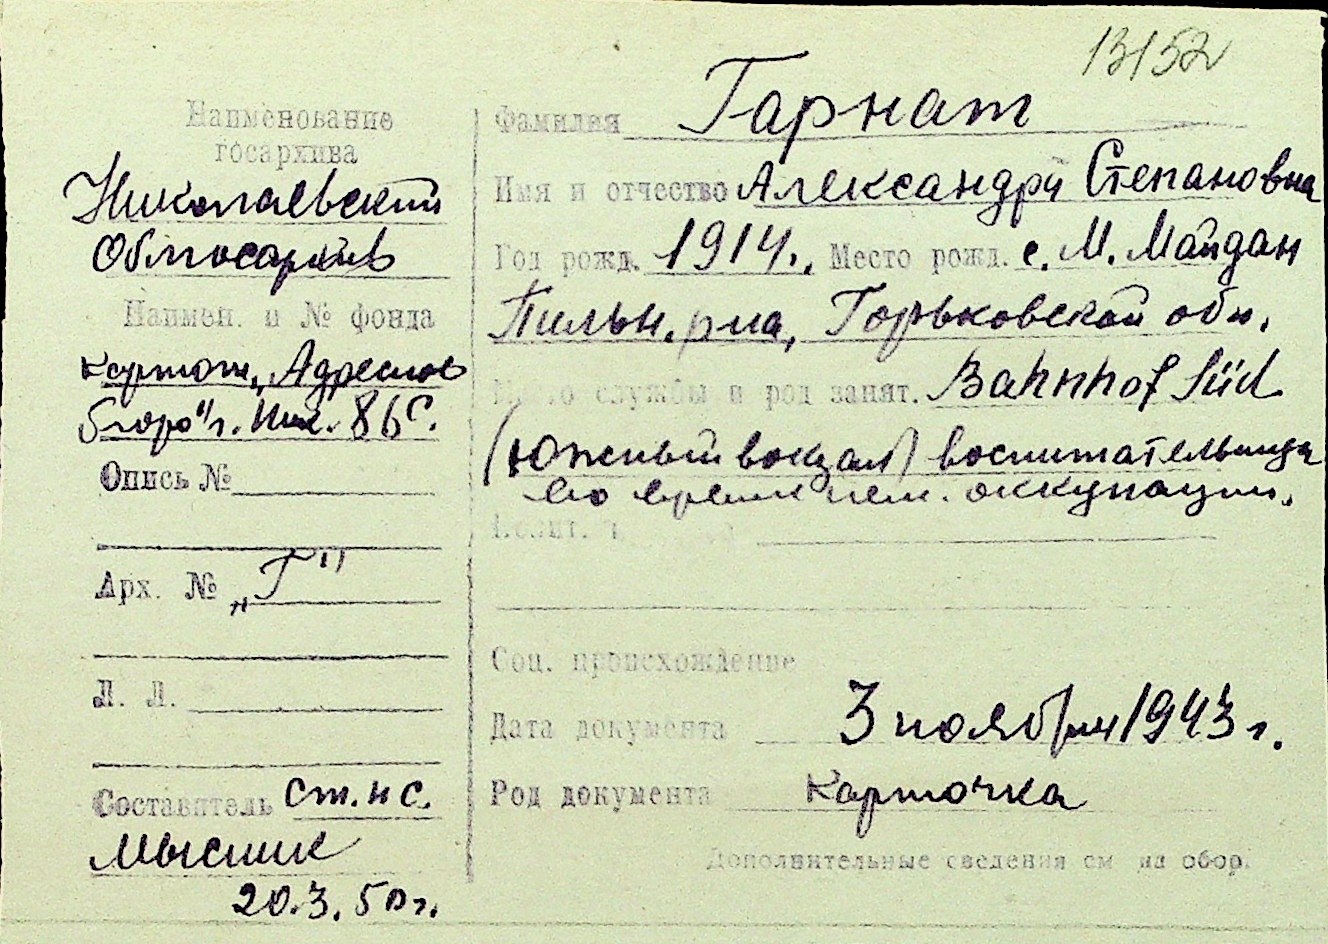 13152
Наименование
госархива
Николаевский
Облгосархив
Наимен. и № фонда
картот. „Адресное
бюро" г. Ник. 86с.
Опись №
Арх. № „Г"
Л. Л.
Составитель ст. н с.
Мысник
20.3.50 г.
Фамилия Гарнат
Имя и отчество Александра Степановна
Год рожд. 1914., Место рожд. с. М. Майдан
Пильн. р-на, Горьковской обл.
службы и род занят. Bahnhof Süd
(Южный вокзал) воспитательница
во время нем. оккупации.
Соц. происхождение
Дата документа 3 ноября 1943 г.
Род документа Карточка
Дополнительные сведения см на обор.